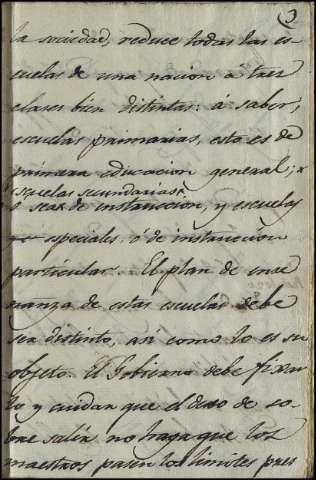 2
la sociedad, reduce todas las es
cuelas de una nacion a tres
clases bien distintas: á saber;
escuelas primarias, esto es de
primara educacion general;
escuelas secundarias
ó sea de instruccion, y escuelas
especiales ó de instruccion
particular. El plan de ense
ñanza de estas escuelas debe
ser distinto, asi como lo es su
objeto. El Gobierno debe fixar
lo y cuidar que el deseo de so
bre salir no haga que los
maestros pasen los limites pres